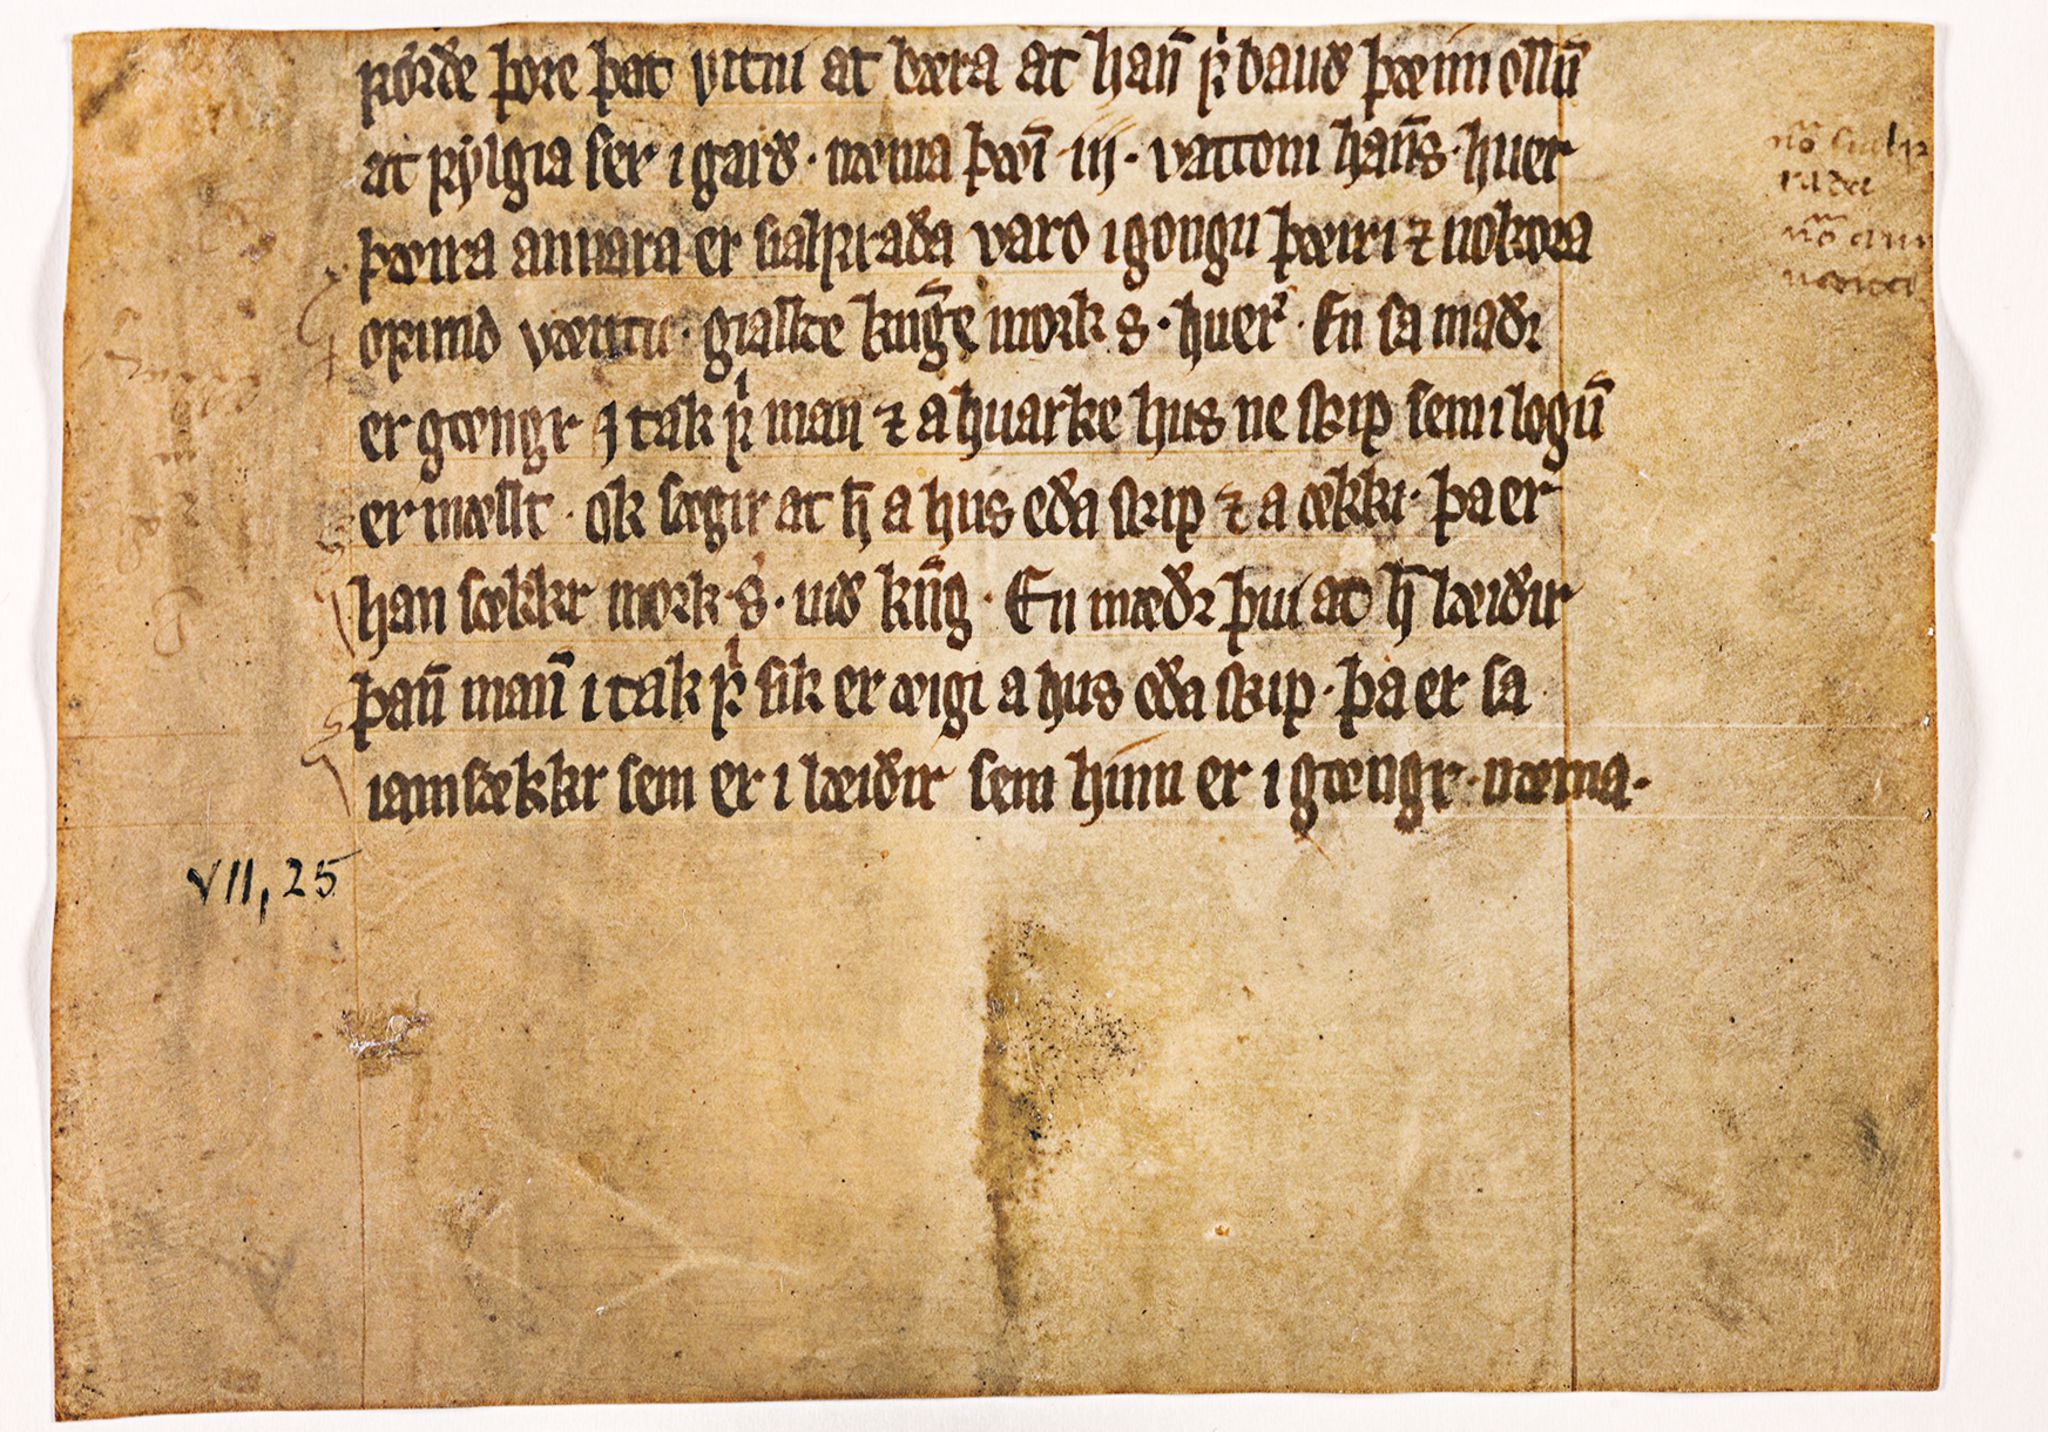 fǿrðe þore þat vitni at bæra at han̄ fͥ bauð þæim ollū
at fylgia ser i garð · næma þæī · iij · vattom han̄s · huer
þæira annara er sialfraða varo i gongu þæiri ⁊ nokora
ofund væittu · giallde kn̄ge mork s · huerʼ · En sa maðꝛ
er gængr j tak fͥ man ⁊ a huarke hus ne skip sem i logū
er mællt · ok sægir at h̄ a hus eða skip ⁊ a ækki · þa er
han sækkr mork · s · við kn̄g · En mæðꝛ þui at h̄ læiðir
þan̄ man̄ i tak fͥ sik er æigi a hus eða skip · þa er sa
iamsækkr sem er i læiðir sem hinn er i gængr · næma ·
VII, 25